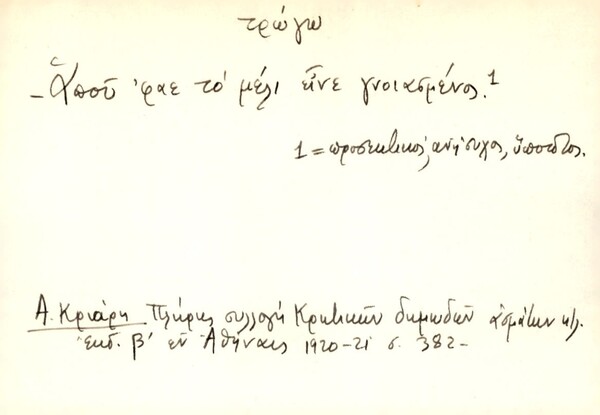 τρώγω
- Ἅποῦ 'φαε τὸ μέλι εἶνε γνοιασμένος.¹
1 = προσεκτικός, ανήσυχος, ὕποπτος.
Α. Κριάρη Πλήρης συλλογή Κρητικῶν δημωδῶν ᾀσμάτων κτλ.
ἐκδ. β' ἐν Ἀθήναις 1920-21 σ. 382-